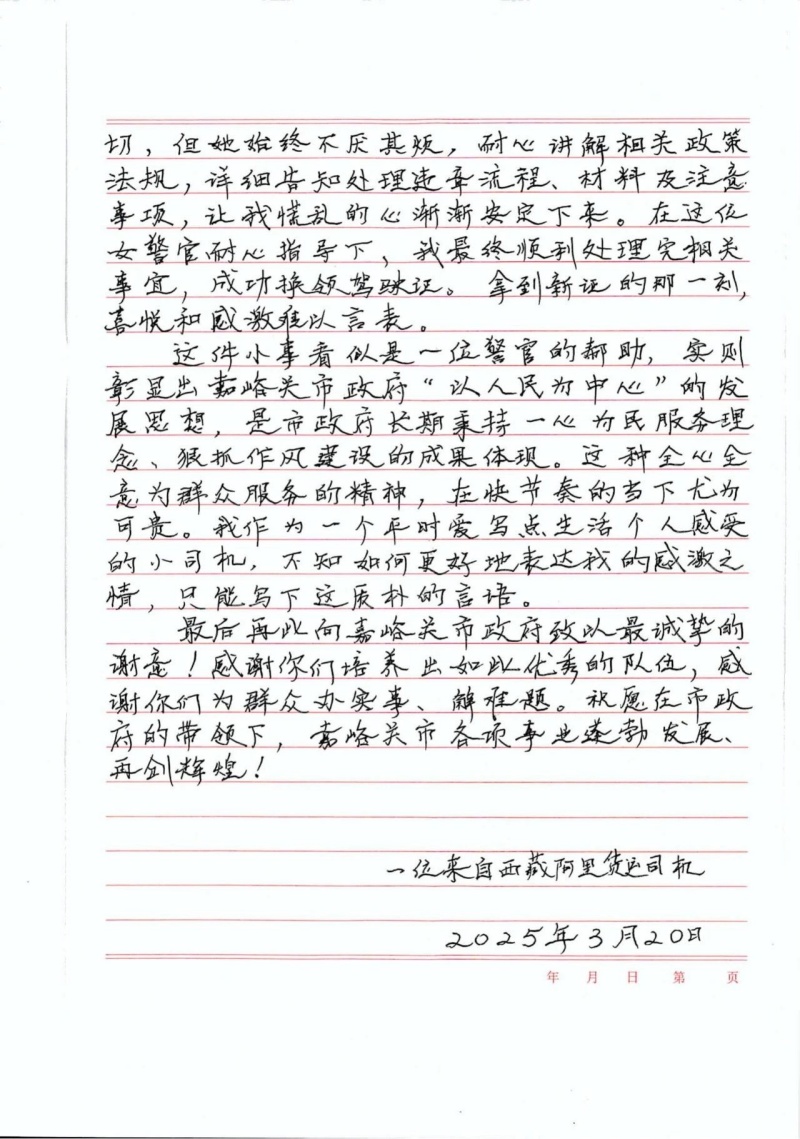 切，但她始终不厌其烦，耐心讲解相关政策
法规，详细告知处理违章流程、材料及注意
事项，让我慌乱的心渐渐安定下来。在这位
女警官耐心指导下，我最终顺利处理完相关
事宜，成功换领驾驶证。拿到新证的那一刻，
喜悦和感激难以言表。
这件小事看似是一位警官的帮助，实则
彰显出嘉峪关市政府“以人民为中心”的发
展思想，是市政府长期秉持一心为民服务理
念、狠抓作风建设的成果体现。这种全心全
意为群众服务的精神，在快节奏的当下尤为
可贵。我作为一个平时爱写点生活个人感受
的小司机，不知如何更好地表达我的感激之
情，只能写下这质朴的言语。
最后再此向嘉峪关市政府致以最诚挚的
谢意！感谢你们培养出如此优秀的队伍，感
谢你们为群众办实事、解难题。祝愿在市政
府的带领下，嘉峪关市各项事业蓬勃发展、
再创辉煌！
一位来自西藏阿里货运司机
2025年3月20日
年 月 日 第 页